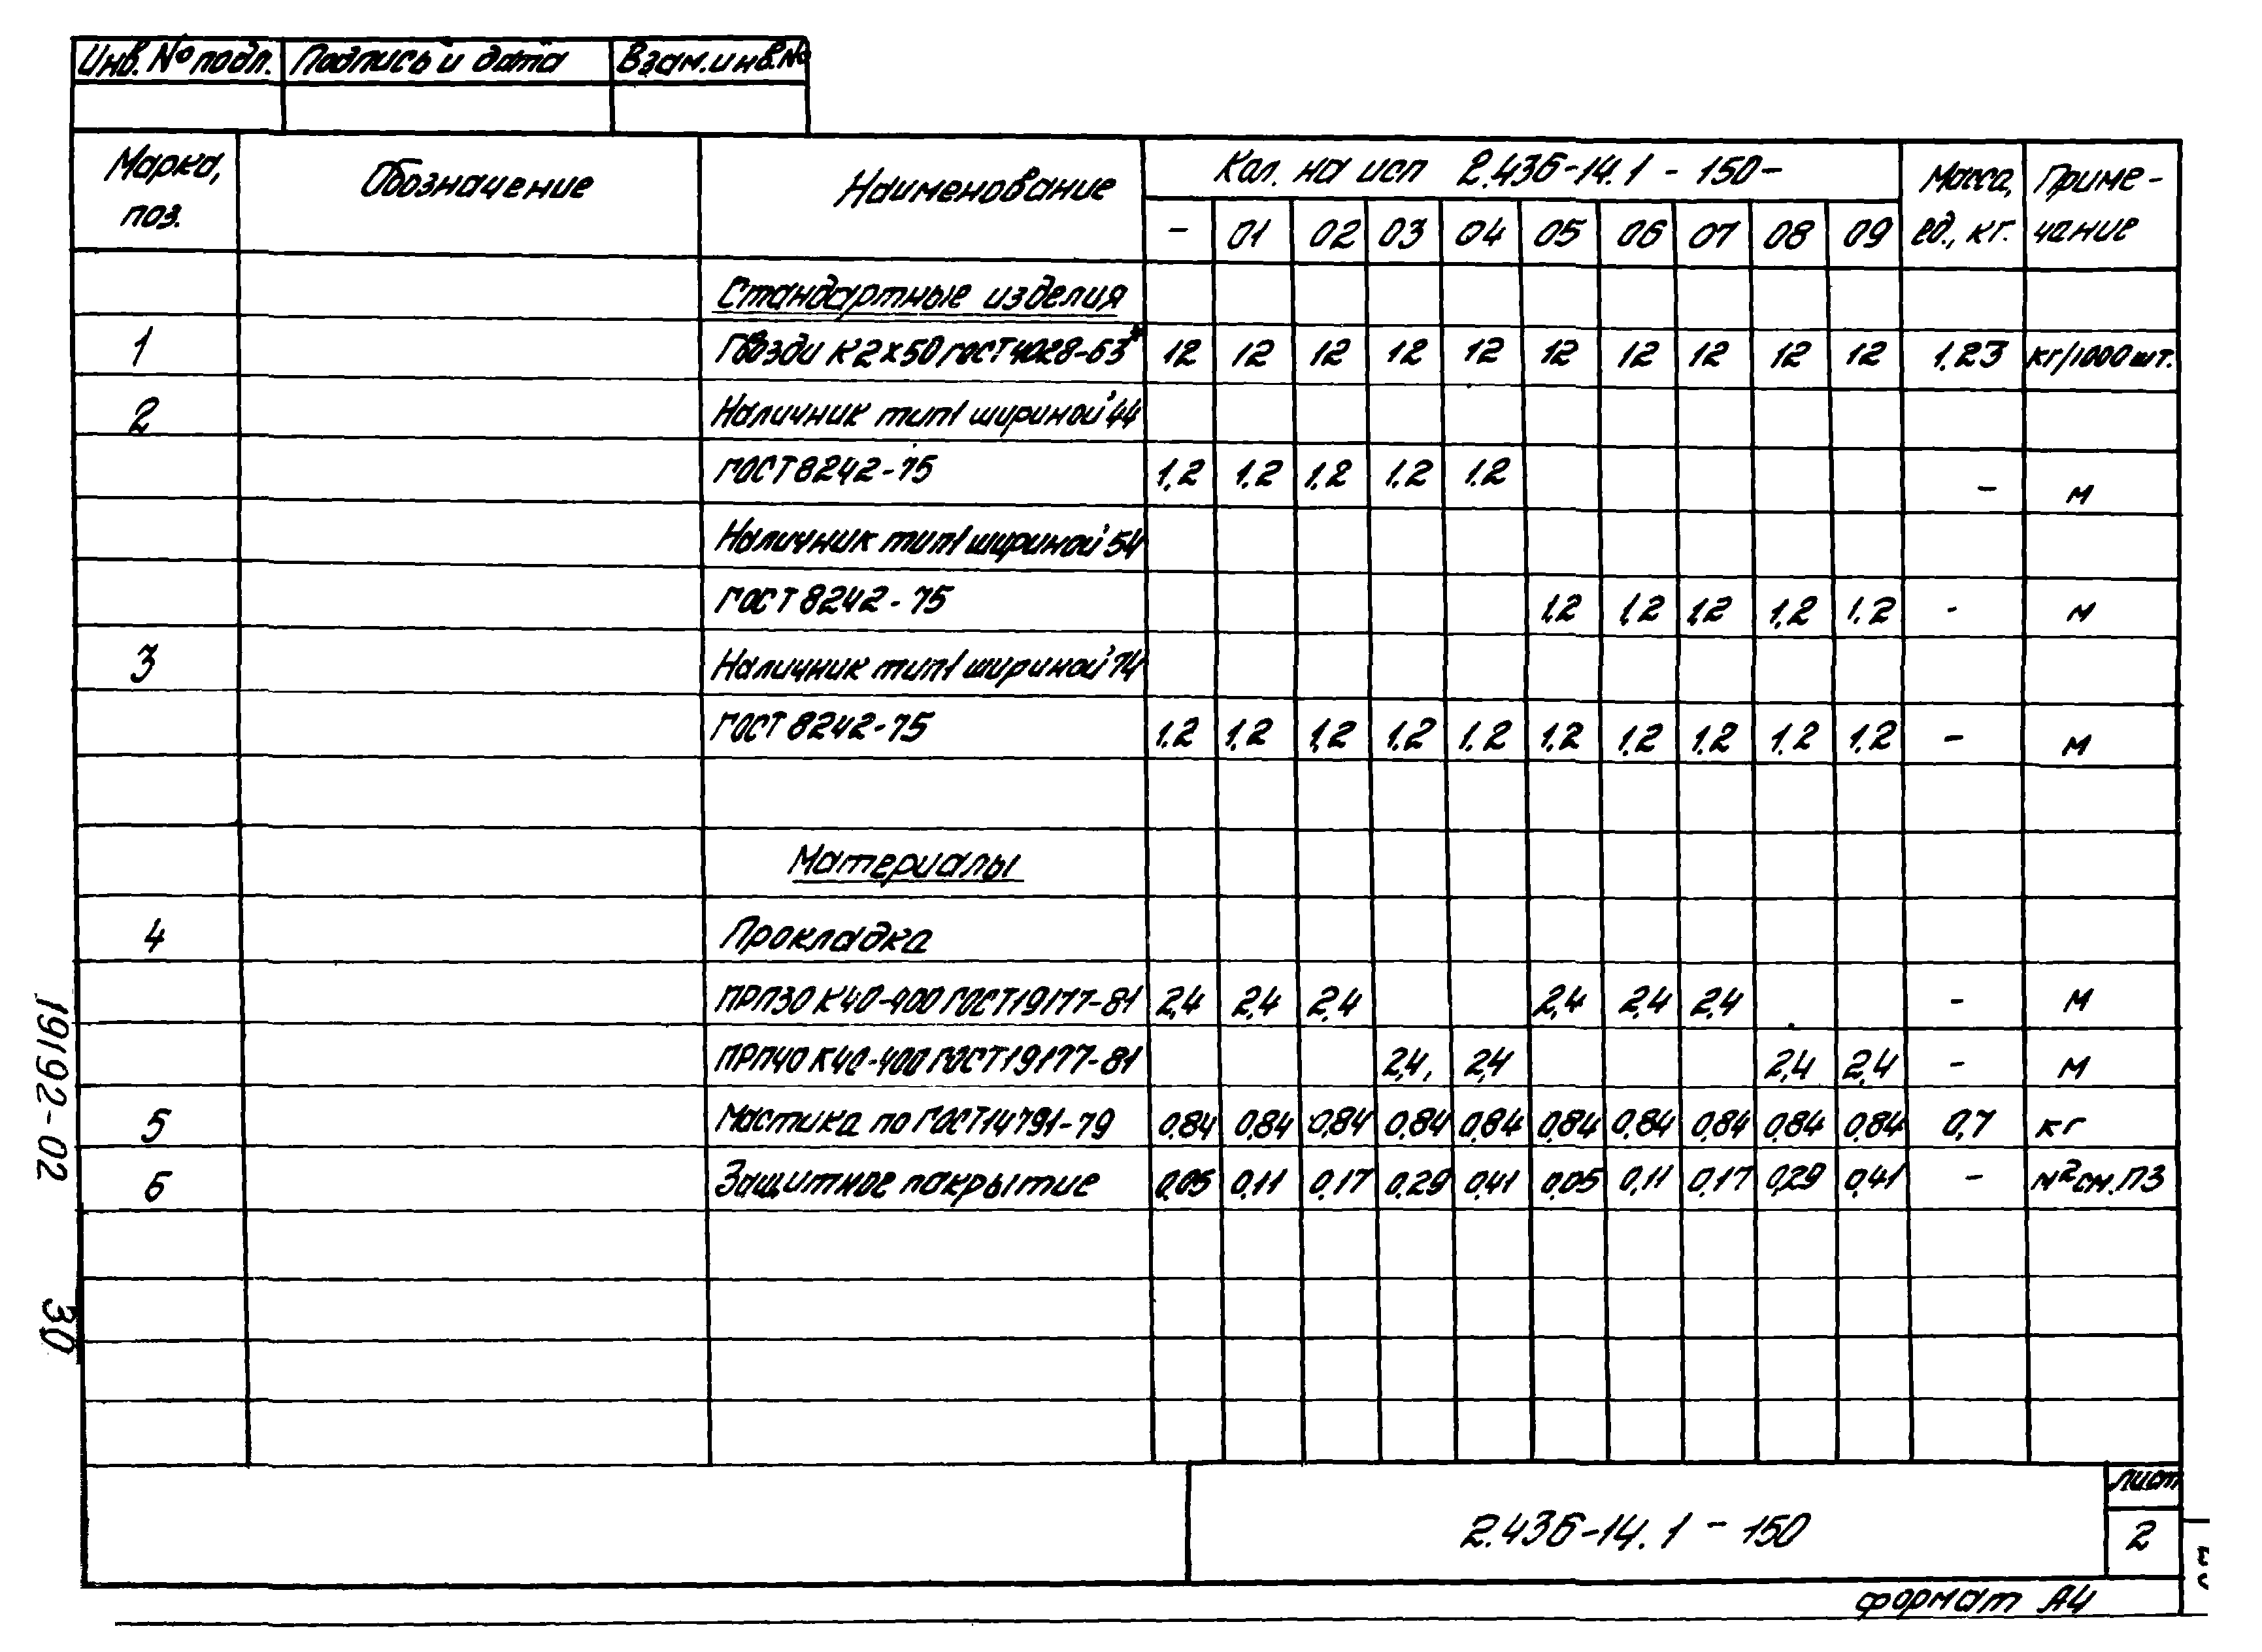 Инв. № подл. Подпись и дата Взам. инв. №
Марка, поз. Обозначение Наименование Кол. на исп 2.436-14.1 - 150- Масса, ед., кг. Приме- чание
- 01 02 03 04 05 06 07 08 09
Стандартные изделия
1 Гвозди К2х50 ГОСТ 4028-63* 12 12 12 12 12 12 12 12 12 12 1.23 кг/1000 шт.
2 Наличник тип1 шириной 44
ГОСТ 8242-75 1,2 1.2 1.2 1.2 1.2 - м
Наличник тип1 шириной 54
ГОСТ 8242-75 1,2 1,2 1,2 1,2 1.2 - м
3 Наличник тип1 шириной 74
ГОСТ 8242-75 1.2 1.2 1,2 1.2 1.2 1.2 1.2 1.2 1.2 1.2 - м
Материалы
4 Прокладка
ПРП30 К40-400 ГОСТ 19177-81 2,4 2,4 2,4 2,4 2,4 2,4 - м
ПРП40 К40-400 ГОСТ 19177-81 2,4 2,4 2,4 2,4 - м
5 Мастика по ГОСТ 14791-79 0,84 0,84 0,84 0,84 0,84 0,84 0,84 0,84 0,84 0,84 0,7 кг
6 Защитное покрытие 0,05 0,11 0,17 0,29 0,41 0,05 0,11 0,17 0,29 0,41 - м² см. ПЗ
19192-02 30
2.436-14.1 - 150
лист
2
формат А4